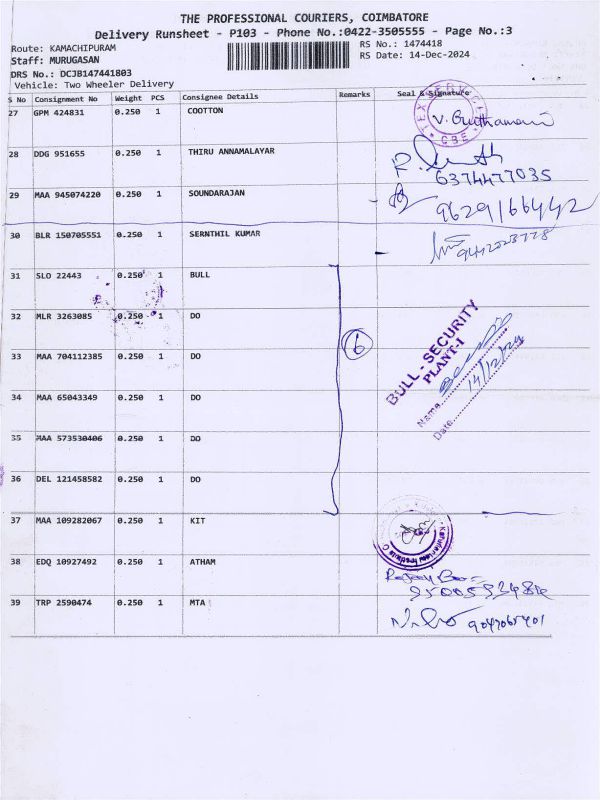 THE PROFESSIONAL COURIERS, COIMBATORE
Delivery Runsheet - P103 - Phone No.:0422-3505555 - Page No.:3
Route: KAMACHIPURAM
RS No.: 1474418
Staff: MURUGASAN
RS Date: 14-Dec-2024
DRS No.: DCJB147441803
Vehicle: Two Wheeler Delivery
S No Consignment No Weight PCS Consignee Details Remarks Seal & Signature
27 GPM 424831 0.250 1 COOTTON
28 DDG 951655 0.250 1 THIRU ANNAMALAYAR
6374477035
29 MAA 945074220 0.250 1 SOUNDARAJAN
9629166442
30 BLR 150705551 0.250 1 SERNTHIL KUMAR
31 SLO 22443 0.250 1 BULL
32 MLR 3263085 0.250 1 DO
6
BULL - SECURITY
PLANT-I
Name
Date 14/12/24
33 MAA 704112385 0.250 1 DO
34 MAA 65043349 0.250 1 DO
35 MAA 573530406 0.250 1 DO
36 DEL 121458582 0.250 1 DO
37 MAA 109282067 0.250 1 KIT
38 EDQ 10927492 0.250 1 ATHAM
39 TRP 2590474 0.250 1 MTA